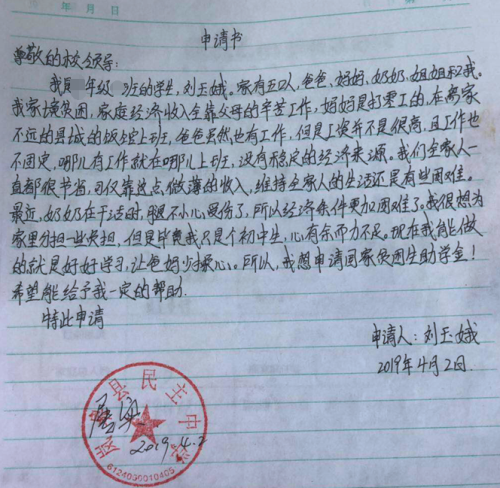 年 月 日
申请书
尊敬的校领导：
我是 年级 班的学生，刘玉娥。家有五口人，爸爸、妈妈、奶奶、姐姐和我。
我家境贫困，家庭经济收入全靠父母的辛苦工作，妈妈是打零工的，在离家
不远的县城的饭馆上班，爸爸虽然也有工作，但是工资并不是很高，且工作也
不固定，哪儿有工作就在哪儿上班，没有稳定的经济来源。我们全家人一
直都很节省，可仅靠这点微薄的收入，维持全家人的生活还是有些困难。
最近，奶奶在干活时，腿不小心受伤了，所以经济条件更加困难了。我很想为
家里分担一些负担，但是毕竟我只是个初中生，心有余而力不足。现在我能做
的就是好好学习，让爸妈少操心。所以，我想申请国家贫困生助学金！
希望能给予我一定的帮助.
特此申请
申请人：刘玉娥
2019年4月2日.
县民主中学
2019.4.2
6124030010405